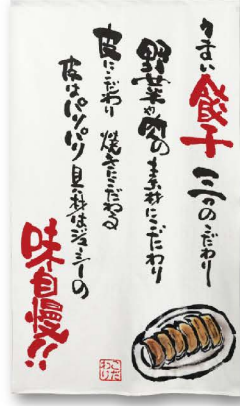 うまい餃子 三つのこだわり
野菜や肉の素材にこだわり
皮にこだわり 焼きにこだわる
皮はパリパリ具材はジューシーの
味自慢!!
こだわり